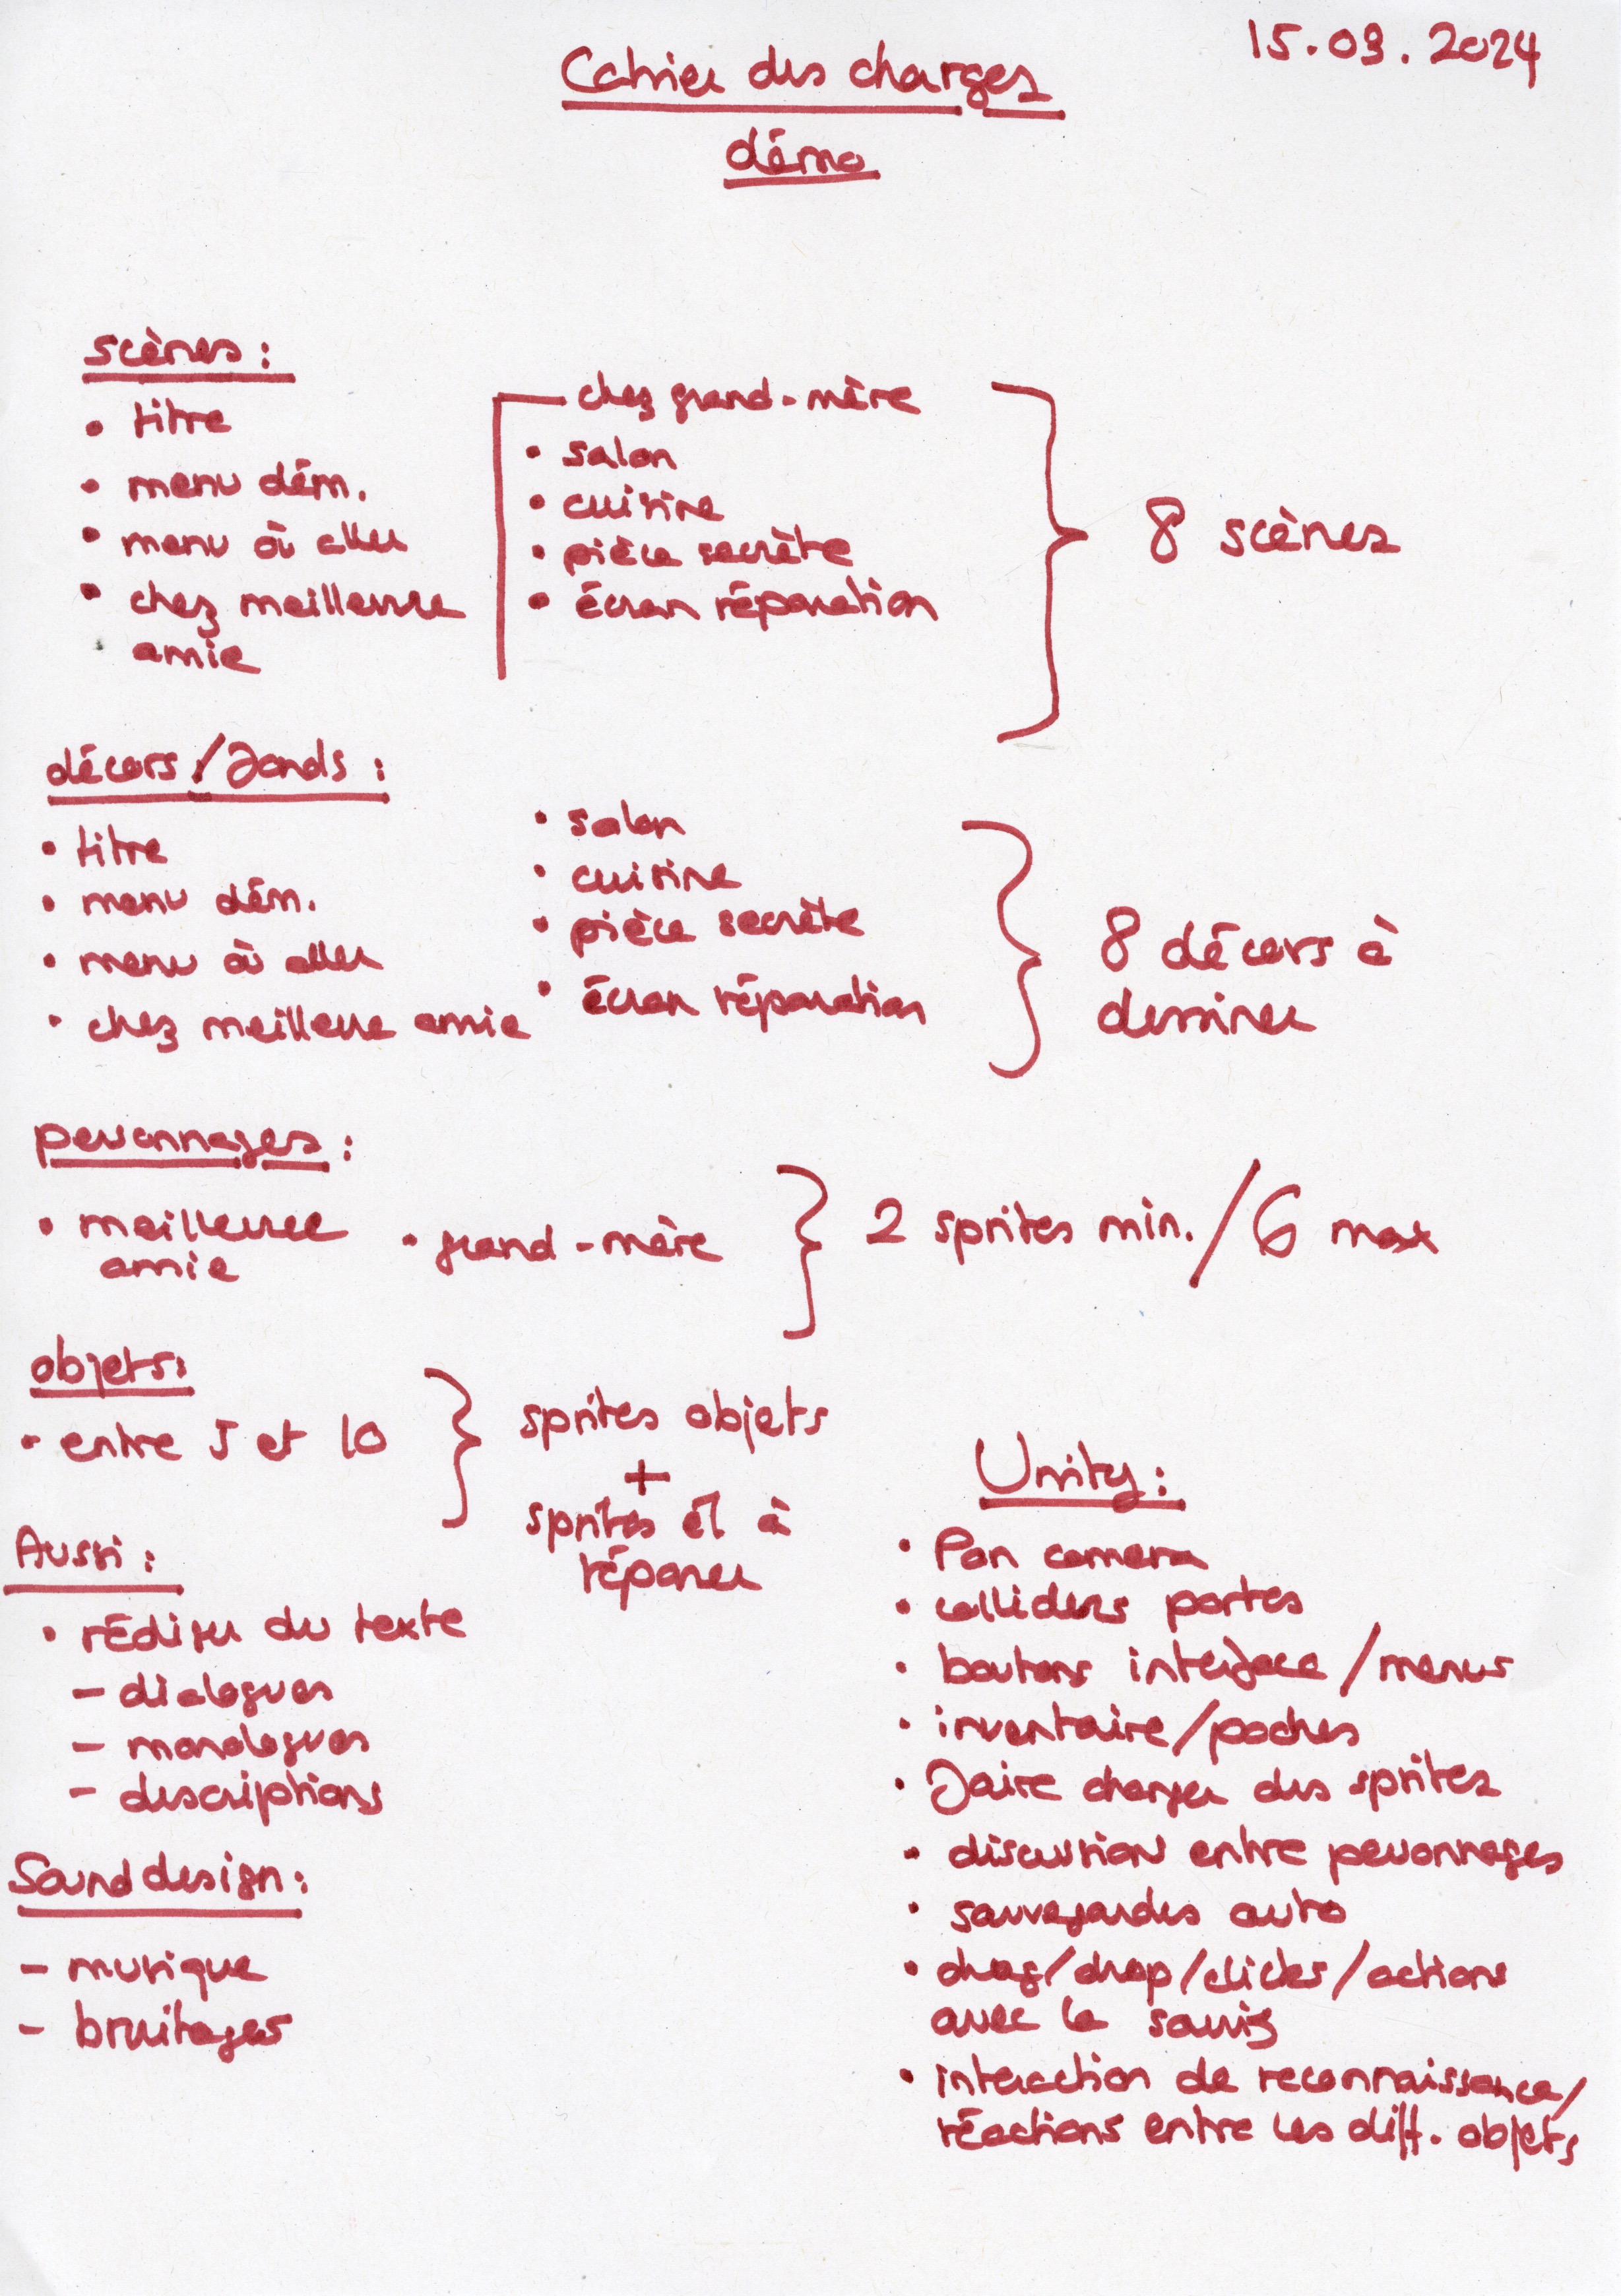 15.03.2024
Cahier des charges
démo
scènes :
• titre
• menu dém.
• menu où aller
• chez meilleure
amie
chez grand-mère
• salon
• cuisine
• pièce secrète
• écran réparation
8 scènes
décors/fonds :
• titre
• menu dém.
• menu où aller
• chez meilleure amie
• salon
• cuisine
• pièce secrète
• écran réparation
8 décors à
dessiner
personnages :
• meilleure
amie
• grand-mère
2 sprites min./6 max
objets:
- entre 5 et 10
sprites objets
+
sprites él à
réparer
Aussi :
• rédiger du texte
- dialogues
- monologues
- descriptions
Sound design :
- musique
- bruitages
Unity :
• Pan camera
• colliders portes
• boutons interface/menus
• inventaire/poches
• faire changer des sprites
• discussion entre personnages
• sauvegardes auto
• drag/drop/clicks/actions
avec la souris
• interaction de reconnaissance/
réactions entre les diff. objets